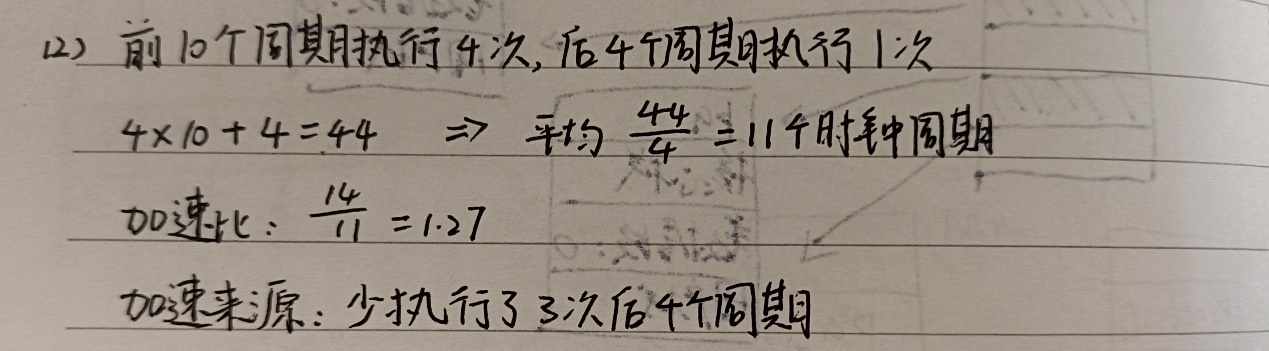 (2) 前10个周期执行4次,后4个周期执行1次
4×10+4=44 ⇒ 平均 44/4 =11个时钟周期
加速比: 14/11 =1.27
加速来源: 少执行了3次后4个周期